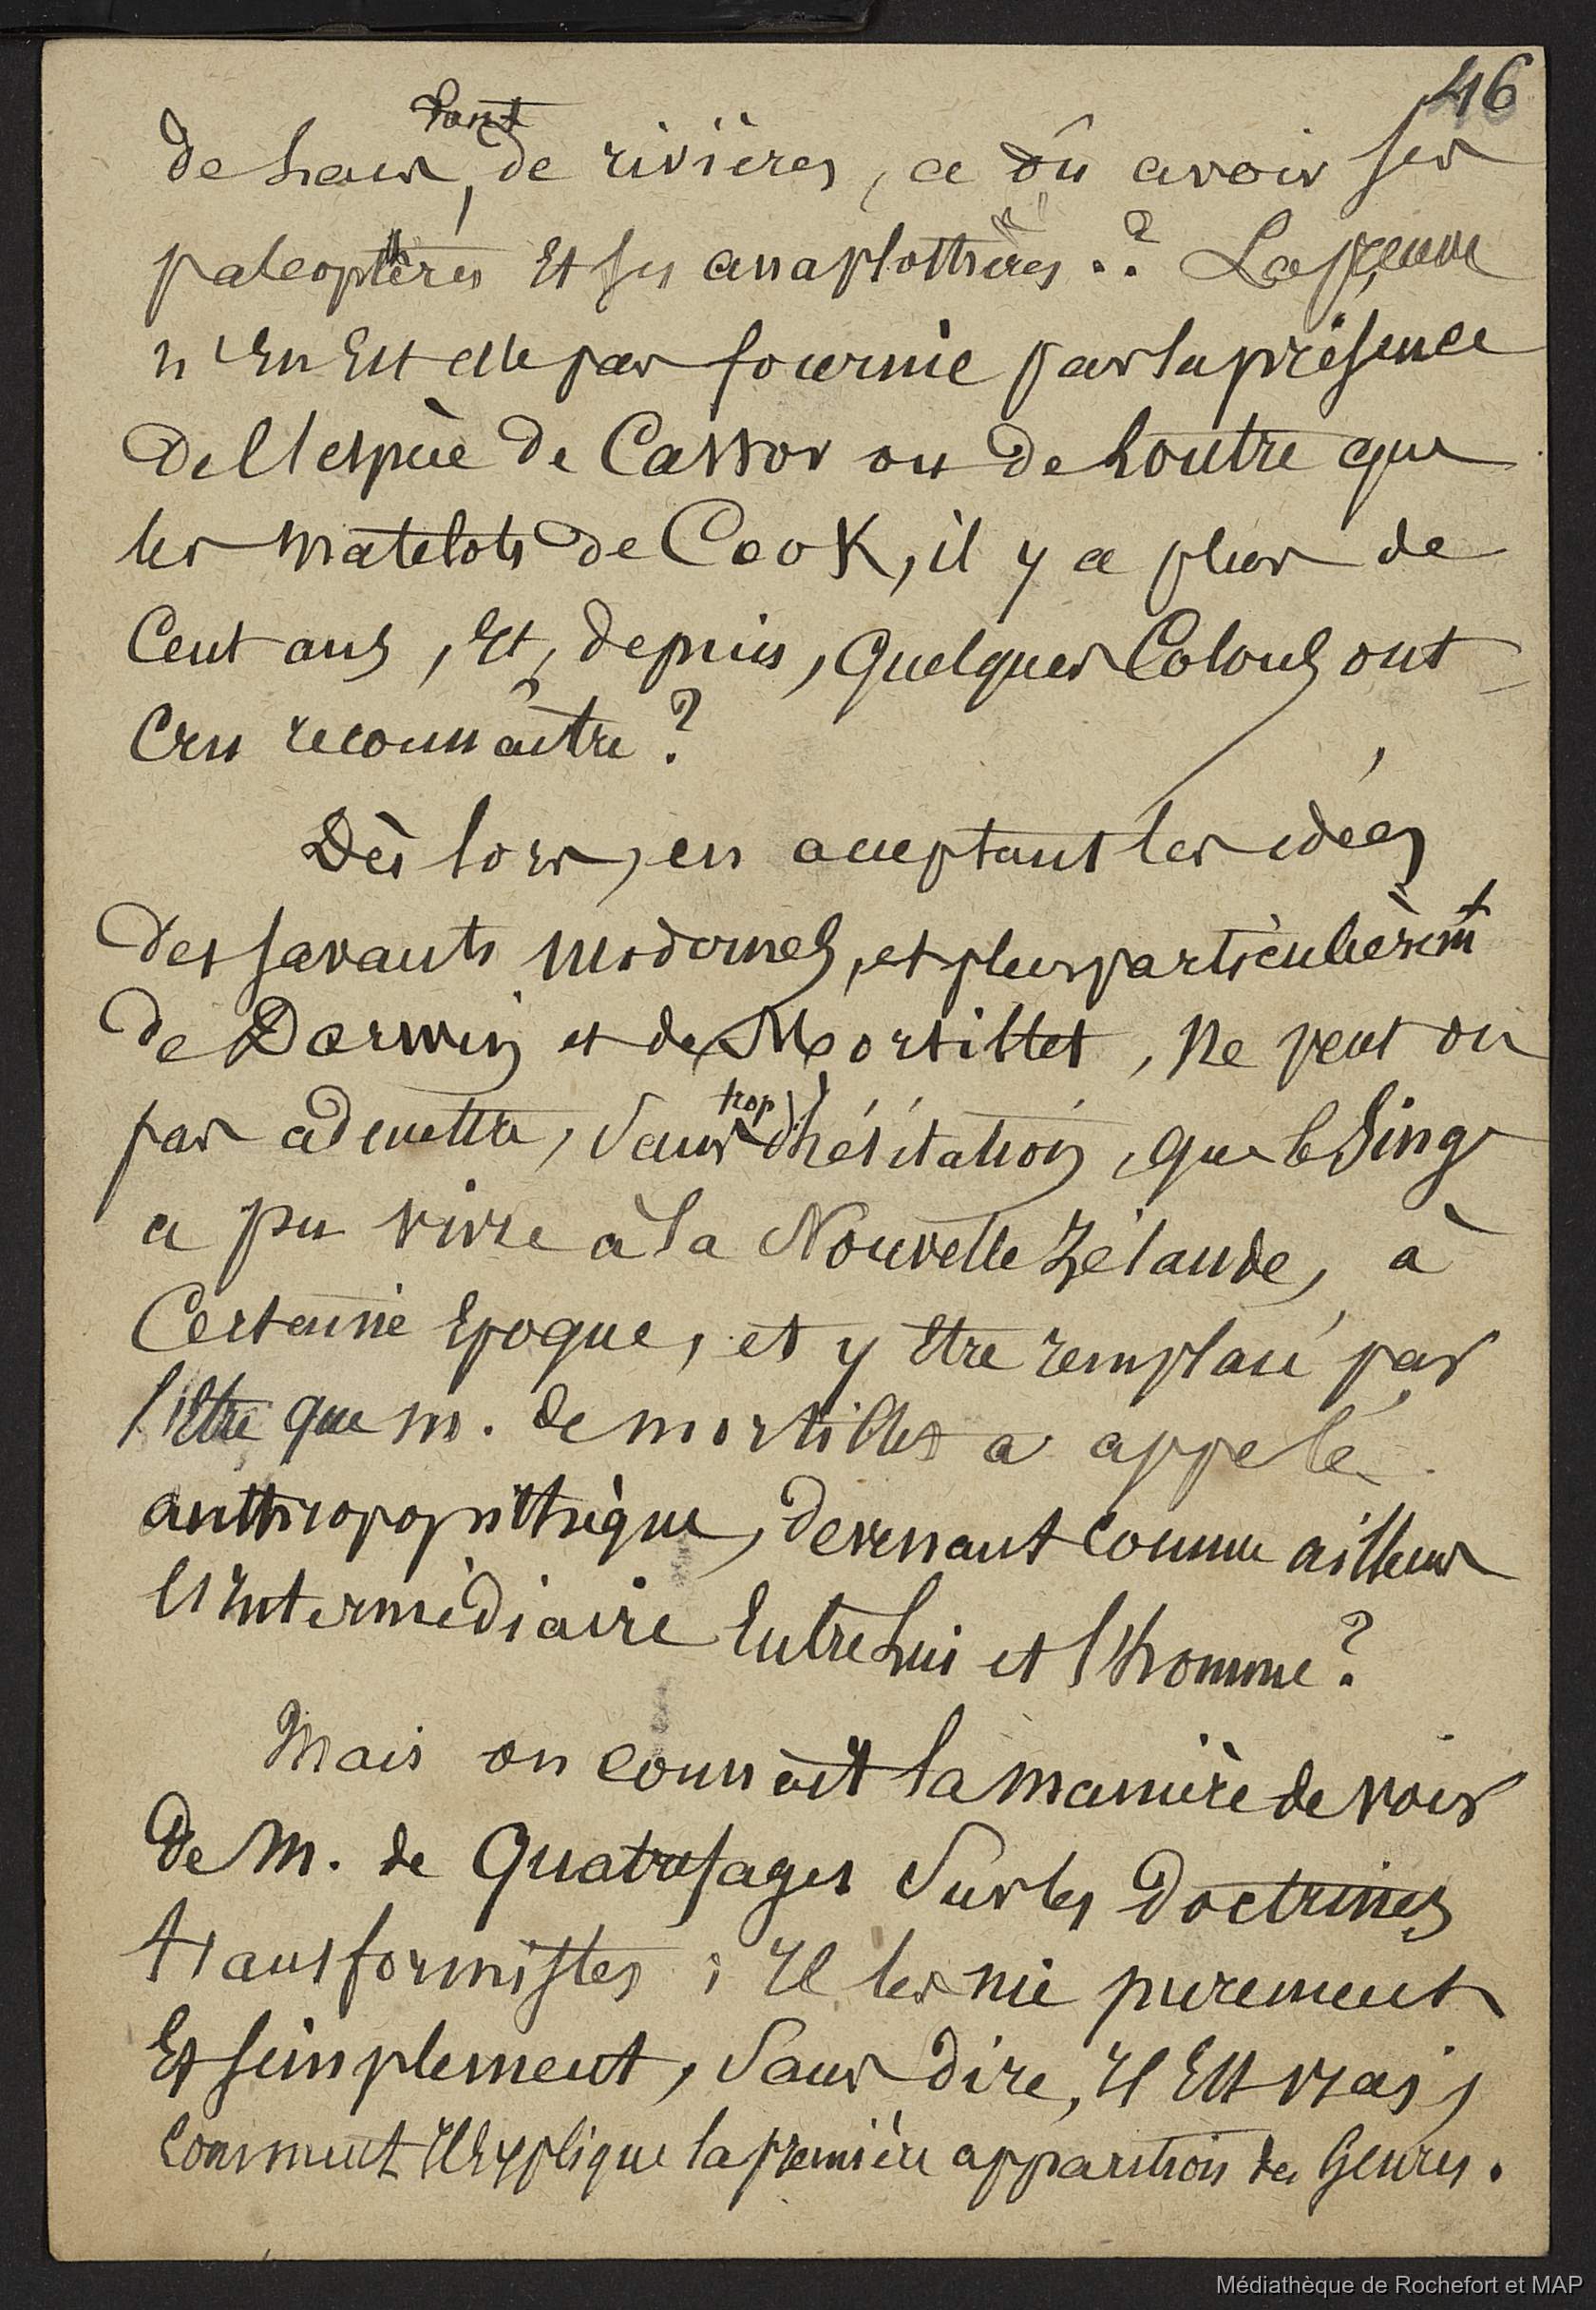 46
tant
de lacs, de rivières, a dû avoir ses
paléoptères Et ses anaplothères..? La preuve
n'En Est elle pas fournie par la présence
De l'espèce de Castor ou de Loutre que
les matelots de Cook, il y a plus de
Cent ans, Et, depuis, quelques Colons ont
Cru reconnaître?
Dès lors, en acceptant les idées
Des savants modernes, et plus particulièremt
de Darwin et de Mortillet, ne peut on
pas admettre, sans trop d'hésitation, que le Singe
a pu vivre à la Nouvelle Zélande, à
Certaine Epoque, et y Etre remplacé par
l'Etre que m. de mortillet a appelé
anthropopithèque, devenant comme ailleurs
l'Intermédiaire Entre Lui et l'homme?
Mais on connaît la manière de voir
de M. de Quatrefages sur les Doctrines
transformistes; Il les nie purement
Et simplement, sans dire, Il Est vrai,
Comment Il Explique la première apparition des Genres.
Médiathèque de Rochefort et MAP